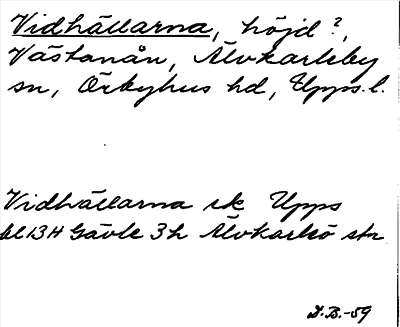 Vidhällarna, höjd?,
Västanån, Älvkarleby
sn, Örbyhus hd, Upps. l.
Vidhällarna ek Upps
bl 13H Gävle 3h Älvkarleö str
D.B.-59